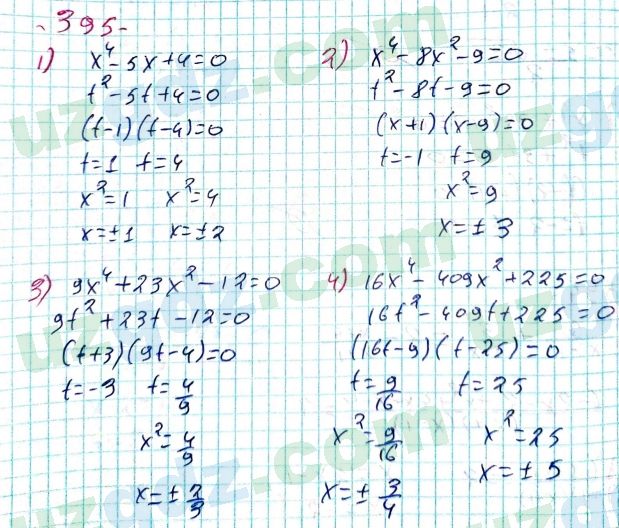 395
1) x⁴-5x+4=0
t²-5t+4=0
(t-1)(t-4)=0
t=1 t=4
x²=1 x²=4
x=±1 x=±2
2) x⁴-8x²-9=0
t²-8t-9=0
(x+1)(x-9)=0
t=-1 t=9
x²=9
x=±3
3) 9x⁴+23x²-12=0
9t²+23t-12=0
(t+3)(9t-4)=0
t=-3 t=4/9
x²=4/9
x=±2/3
4) 16x⁴-409x²+225=0
16t²-409t+225=0
(16t-9)(t-25)=0
t=9/16 t=25
x²=9/16 x²=25
x=±3/4 x=±5